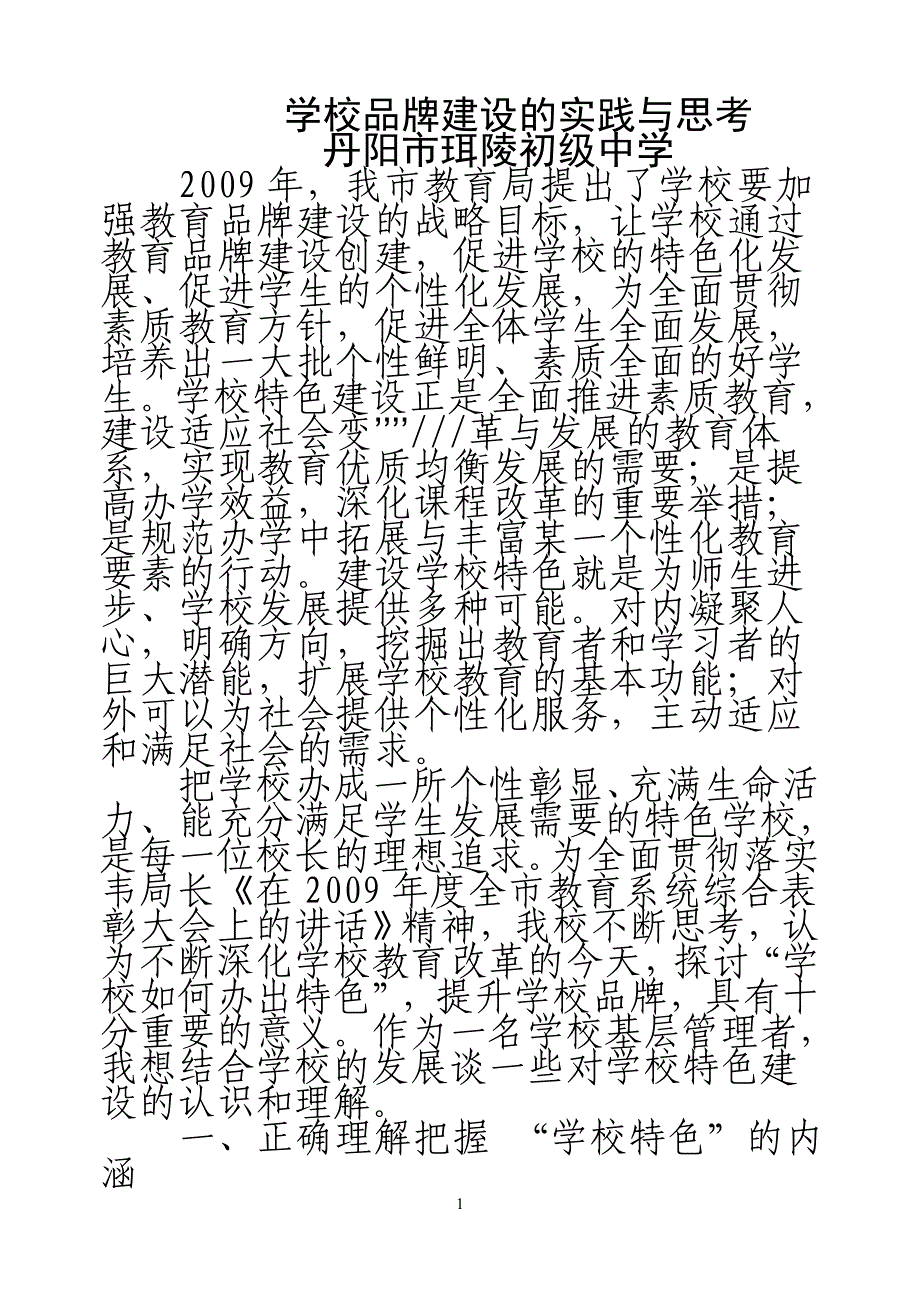 学校品牌建设的实践与思考
丹阳市珥陵初级中学
2009 年，我市教育局提出了学校要加
强教育品牌建设的战略目标，让学校通过
教育品牌建设创建，促进学校的特色化发
展、促进学生的个性化发展，为全面贯彻
素质教育方针，促进全体学生全面发展，
培养出一大批个性鲜明、素质全面的好学
生。学校特色建设正是全面推进素质教育，
建设适应社会变""///革与发展的教育体
系，实现教育优质均衡发展的需要；是提
高办学效益，深化课程改革的重要举措；
是规范办学中拓展与丰富某一个性化教育
要素的行动。建设学校特色就是为师生进
步、学校发展提供多种可能。对内凝聚人
心，明确方向，挖掘出教育者和学习者的
巨大潜能，扩展学校教育的基本功能；对
外可以为社会提供个性化服务，主动适应
和满足社会的需求。
把学校办成一所个性彰显、充满生命活
力、能充分满足学生发展需要的特色学校，
是每一位校长的理想追求。为全面贯彻落实
韦局长《在 2009 年度全市教育系统综合表
彰大会上的讲话》精神，我校不断思考，认
为不断深化学校教育改革的今天，探讨“学
校如何办出特色”，提升学校品牌，具有十
分重要的意义。作为一名学校基层管理者，
我想结合学校的发展谈一些对学校特色建
设的认识和理解。
一、正确理解把握 “学校特色”的内
涵
1